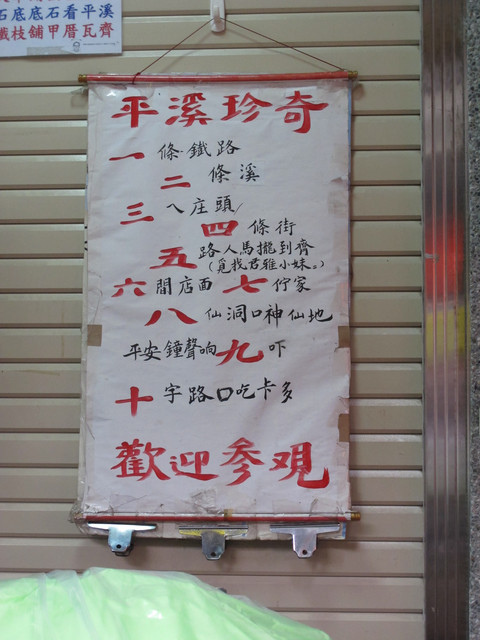 石底底石看平溪
鐵枝舖甲厝瓦齊
平溪珍奇
一條鐵路
二條溪
三八庄頭
四條街
五路人馬攏到齊
(覓找君雅小妹。)
六間店面七佇家
八仙洞口神仙地
平安鐘聲响九吓
十字路口吃卡多
歡迎参观